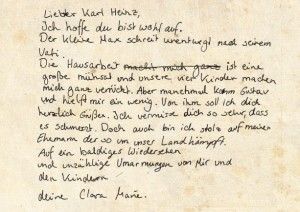 Lieber Karl Heinz,
Ich hoffe du bist wohl auf.
Der kleine Max schreit unentwegt nach seinem
Vati.
Die Hausarbeit macht mich ganz ist eine
große mühsal und unsere vier Kinder machen
mich ganz verrückt. Aber manchmal komm Gustav
und hielft mir ein wenig. Von ihm soll ich dich
herzlich Grüßen. Ich vermisse dich so sehr, dass
es schmerzt. Doch auch bin ich stolz auf meinen
Ehemann der so um unser Land kämpft.
Auf ein baldiges Wiedersehen
und unzählige Umarmungen von Mir und
den Kindern
deine Clara Marie.